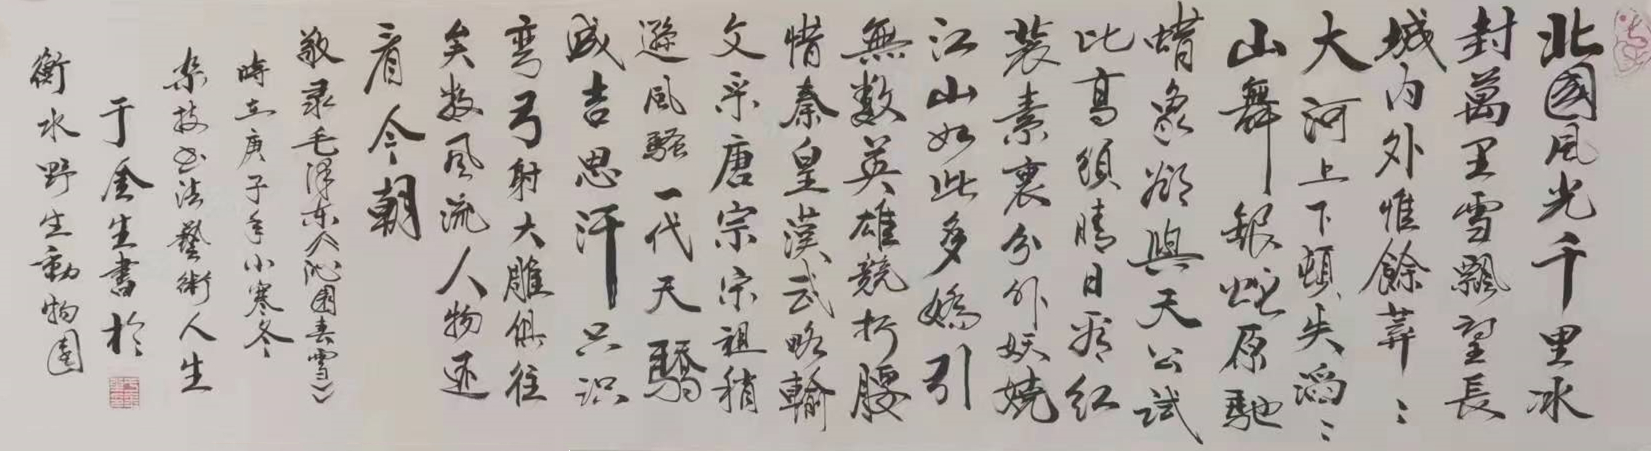 北國风光千里冰
封萬里雪飄望長
城内外惟餘莽〻
大河上下頓失滔〻
山舞銀蛇原馳
蜡象欲與天公試
比高須晴日看红
装素裹分外妖娆
江山如此多嬌引
無數英雄競折腰
惜秦皇漢武略輸
文采唐宗宋祖稍
遜風騷一代天驕
成吉思汗只识
弯弓射大雕俱往
矣数风流人物还
看今朝
敬录毛泽东《沁园春雪》
時在庚子年小寒冬
杂技书法藝術人生
于金生書於
衡水野生動物园